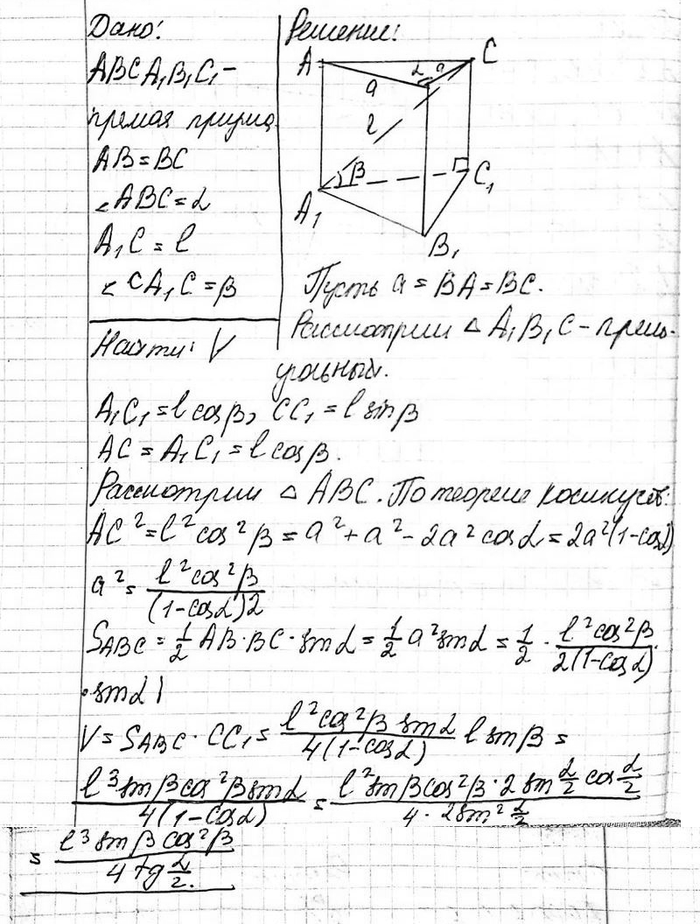 Дано:
ABCA₁B₁C₁ -
прямая призма
AB = BC
∠ABC = α
A₁C = l
∠CA₁C = β
Найти: V
Решение:
A
C
α
a
a
l
β
A₁
C₁
B₁
Пусть a = BA = BC.
Рассмотрим △ A₁B₁C - прямо-
угольный.
A₁C₁ = l cosβ, CC₁ = l sinβ
AC = A₁C₁ = l cosβ.
Рассмотрим △ ABC. По теореме косинусов:
AC² = l² cos²β = a² + a² - 2a² cosα = 2a²(1-cosα)
a² = l² cos²β / (1-cosα)2
S_ABC = 1/2 AB · BC · sinα = 1/2 a² sinα = 1/2 · l² cos²β / 2(1-cosα) ·
· sinα
V = S_ABC · CC₁ = l² cos²β sinα / 4(1-cosα) l sinβ =
l³ sinβ cos²β sinα / 4(1-cosα) = l² sinβ cos²β · 2 sin α/2 cos α/2 / 4 · 2sin² α/2
= l³ sinβ cos²β / 4 tg α/2.